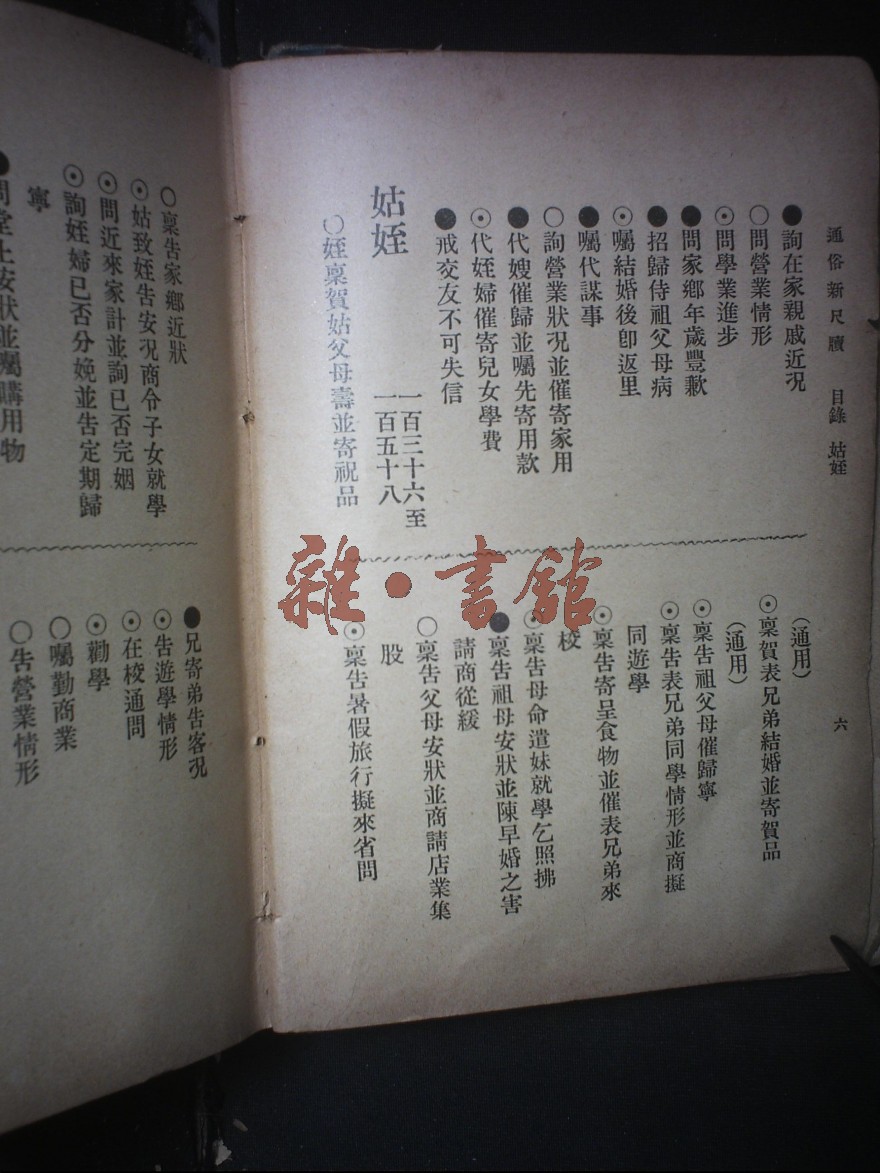 通俗新尺牘 目錄 姑姪 六
●詢在家親戚近況
○問營業情形
⊙問學業進步
●問家鄉年歲豐歉
●招歸侍祖父母病
⊙囑結婚後卽返里
●囑代謀事
○詢營業狀況並催寄家用
●代嫂催歸並囑先寄用款
⊙代姪婦催寄兒女學費
●戒交友不可失信
姑姪 一百三十六至
一百五十八
○姪稟賀姑父母壽並寄祝品
(通用)
⊙稟賀表兄弟結婚並寄賀品
(通用)
⊙稟告祖父母催歸寧
⊙稟告表兄弟同學情形並商擬
同遊學
⊙稟告寄呈食物並催表兄弟來
校
⊙稟告母命遣妹就學乞照拂
●稟告祖母安狀並陳早婚之害
請商從緩
○稟告父母安狀並商請店業集
股
⊙稟告暑假旅行擬來省問
○稟告家鄉近狀
⊙姑致姪告安況商令子女就學
⊙問近來家計並詢已否完姻
⊙詢姪婦已否分娩並告定期歸
寧
●問堂上安狀並囑購用物
●兄寄弟告客況
⊙告遊學情形
⊙在校通問
⊙勸學
○囑勤商業
○告營業情形
雜·書館